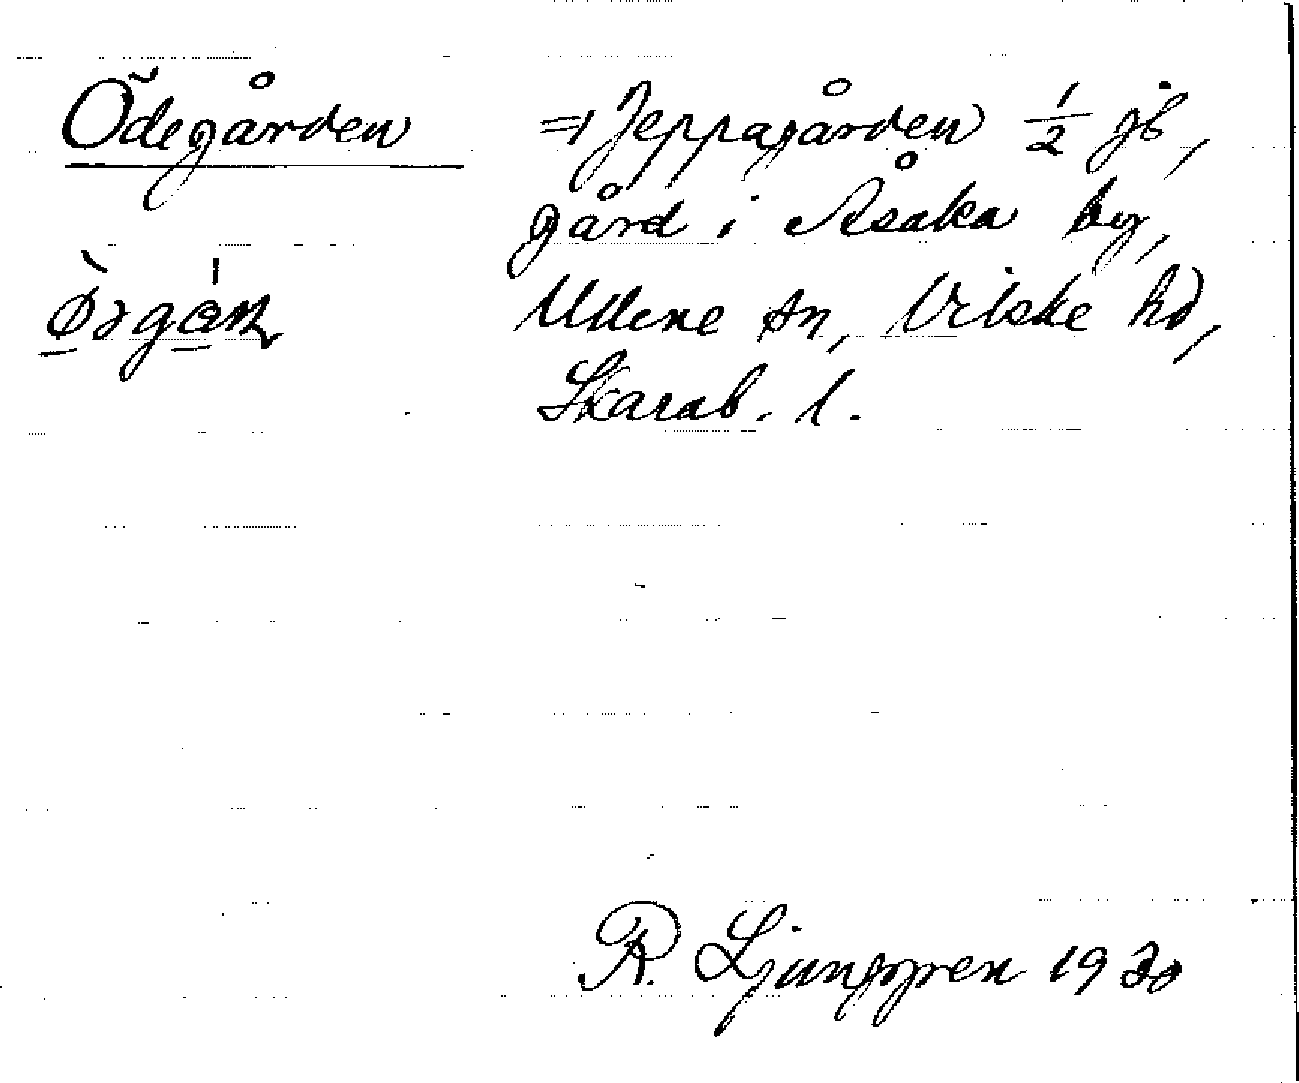 Ödegården = Jeppagården ½ jb,
gård i Åsaka by,
Ullene sn, Vilske hd,
Skarab. l.
R. Ljunggren 1930